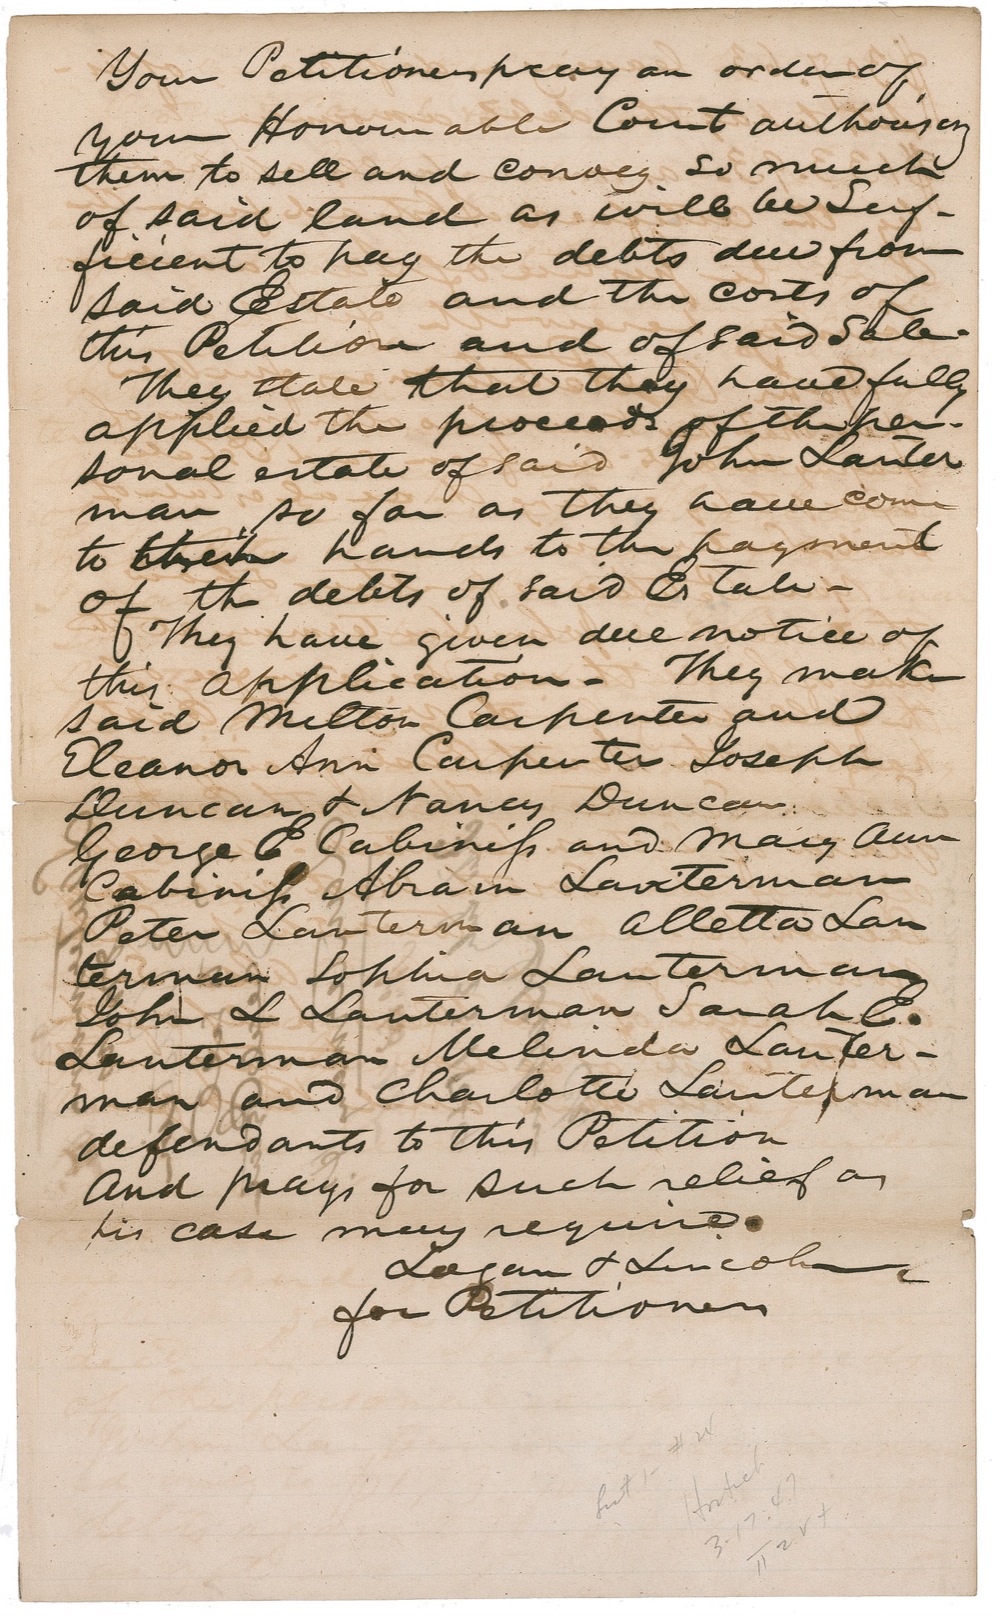 Your Petitioners pray an order of
your Honourable Court authorising
them to sell and convey so much
of said land as will be Suf-
ficient to pay the debts due from
said Estate and the costs of
this Petition and of said Sale.
They state that they have fully
applied the proceeds of the per-
sonal estate of said John Lanter
man so far as they have come
to their hands to the payment
of the debts of said Estate -
They have given due notice of
this application - They make
said Milton Carpenter and
Eleanor Ann Carpenter Joseph
Duncan & Nancy Duncan
George E Cabiniss and Mary Ann
Cabiniss Abram Lanterman
Peter Lanterman Alletta Lan
terman Sophia Lanterman
John L Lanterman Sarah E.
Lanterman Melinda Lanter-
man and Charlotte Lanterman
defendants to this Petition
And prays for such relief as
his case may require.
Logan & Lincoln
for Petitioners
3-17-47